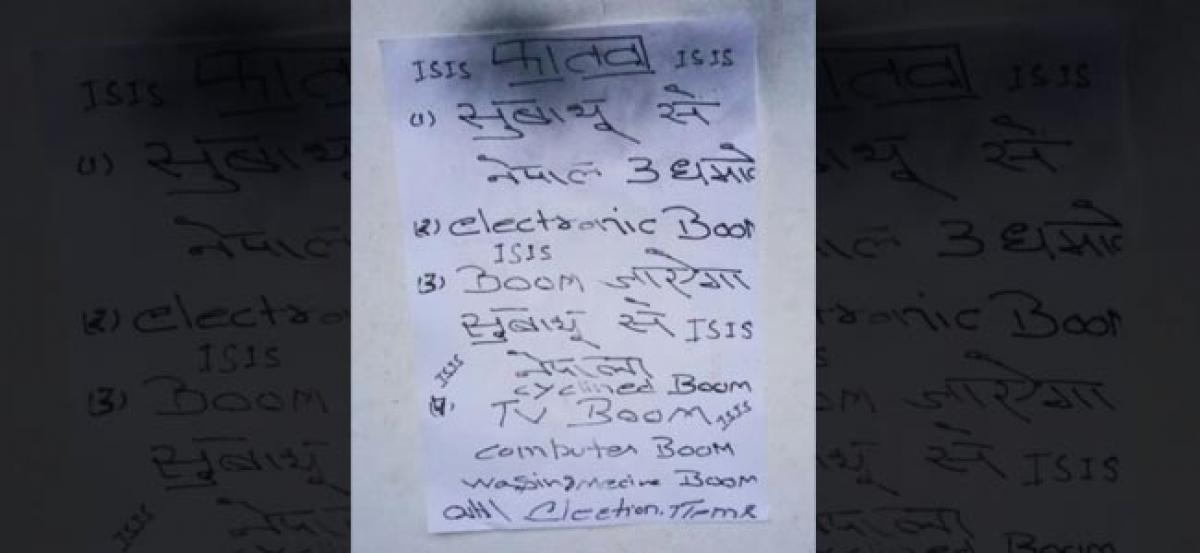 ISIS कातव ISIS
(1) सुबाथू से
नेपाल 3 धमाके
(2) electronic Boom
ISIS
(3) Boom जाऐगा
सुबाथू से ISIS
ISIS नेपाल
cyclined Boom
(4) TV Boom ISIS
computer Boom
wassingmecine Boom
All